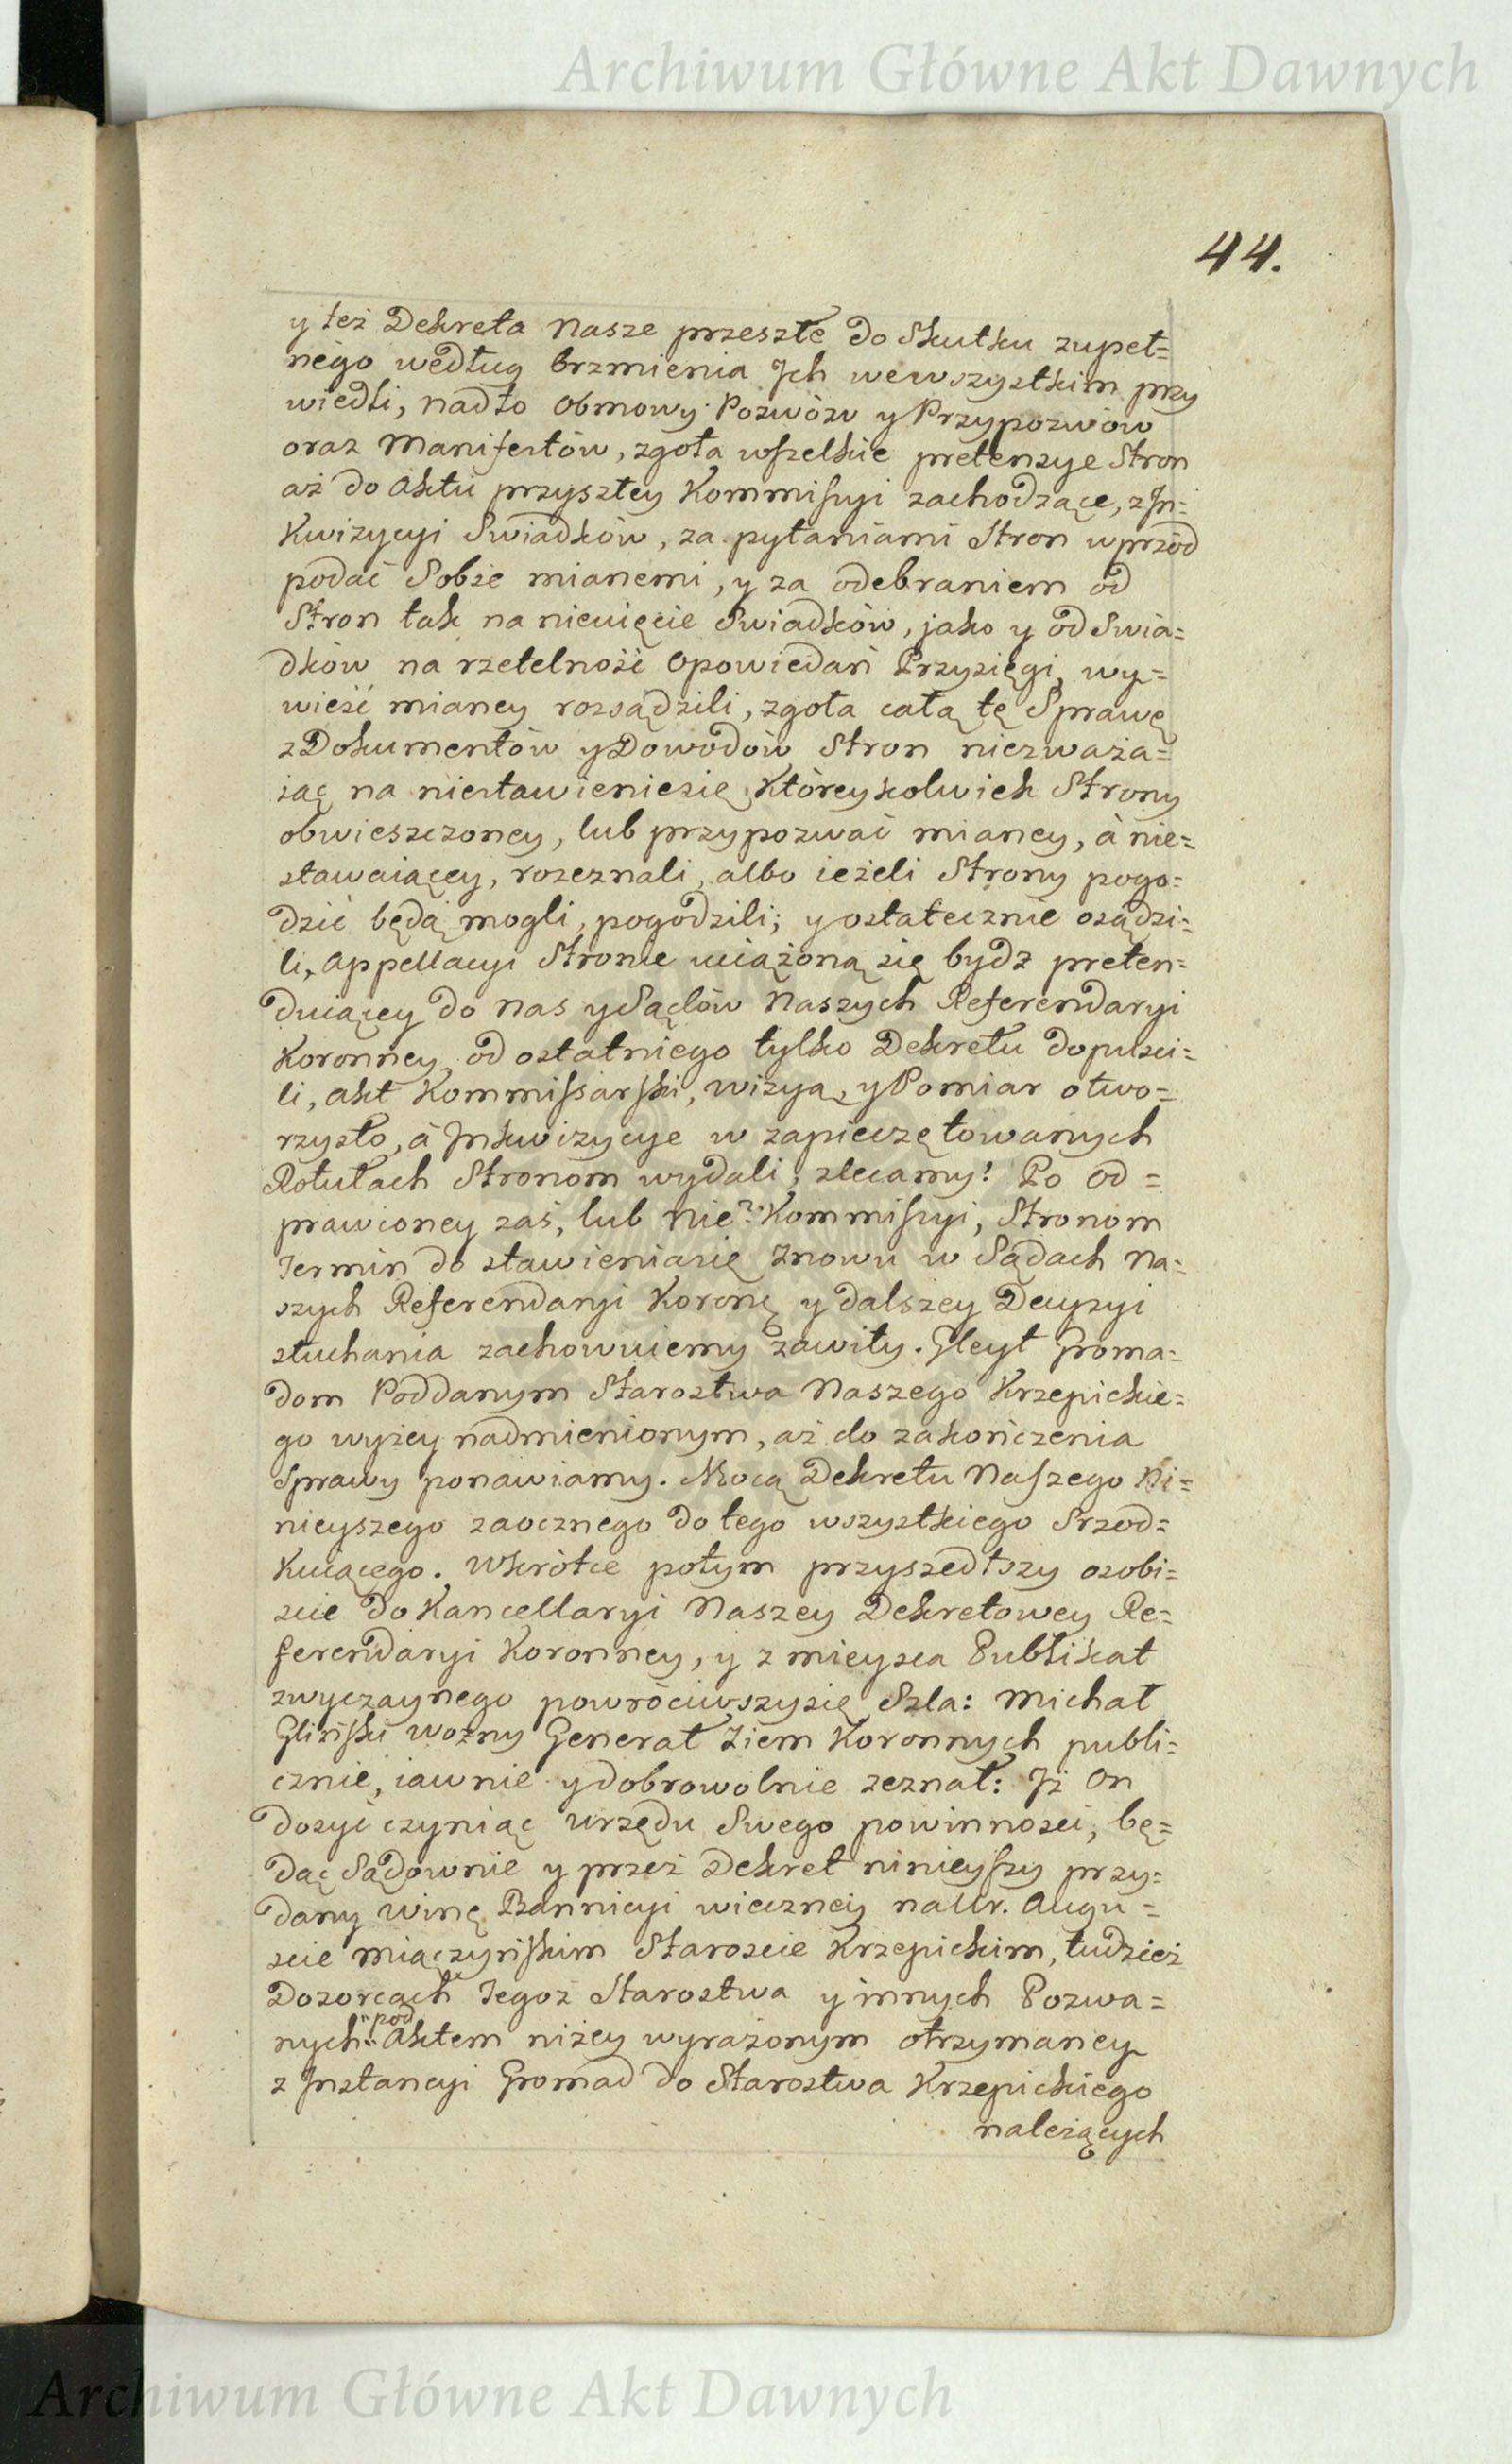 Archiwum Główne Akt Dawnych
44.
y też Dekreta Nasze przeszłe do Skutku zupeł=
nego według brzmienia Jch wewszystkim przy
wiedli, nadto Obmowy Pozwów y Przypozwów
oraz Manifestów, zgoła wszelkie pretensye Stron
aż do Aktu przyszłey Kommissyi zachodzące, z Jn=
kwizycyi Swiadków, za pytaniami Stron wprzód
podać Sobie mianemi, y za odebraniem od
Stron tak na niewięcie Swiadków, jako y od Swia=
dków na rzetelność Opowiedań Przysięgi, wy=
wieść mianey rozsądzili, zgoła całą tę Sprawę
z Dokumentów y Dowodów Stron niezważa=
iąc na niestawieniesię Któreykolwiek Strony
obwieszczoney, lub przypozwać mianey, à nie=
stawaiącey, rozeznali, albo ieżeli Strony pogo=
dzić będą mogli, pogodzili; y ostatecznie osądzi=
li, Appellacyi Stronie uciążoną się bydz preten=
duiącey do Nas y Sądów Naszych Referendaryi
Koronney od ostatniego tylko Dekretu dopuści=
li, Akt Kommissarski, wizyą, y Pomiar otwo=
rzysto, à Jnkwizycye w zapieczętowanych
Rotułach Stronom wydali, zlecamy! Po Od=
prawioney zaś, lub nie Kommissyi, Stronom
Termin do stawieniasię Znowu w Sądach Na=
szych Referendaryi Koronę y dalszey Decyzyi
słuchania zachowuiemy zawity. Gleyt Groma=
dom Poddanym Starostwa Naszego Krzepickie=
go wyżey nadmienionym, aż do zakończenia
Sprawy ponawiamy. Mocą Dekretu Naszego Ni=
nieyszego zaocznego do tego wszystkiego Srzod=
kuiącego. Wkrótce potym przyszedłszy osobi=
scie do Kancellaryi Naszey Dekretowey Re=
ferendaryi Koronney, y z mieysca Publikat
zwyczaynego powróciwszysię Szla: Michał
Gliński wozny Generał Ziem Koronnych publi=
cznie, iawnie y dobrowolnie zeznał: Jż On
dosyć czyniąc urzędu Swego powinności, bę=
dąc Sądownie y przez Dekret ninieyszy przy=
dany winę Bannicyi wieczney na Ur. Augu=
scie Miączyńskim Staroscie Krzepickim, tudzież
Dozorcach Tegoż Starostwa y innych Pozwa=
nych pod Aktem niżey wyrażonym otrzymaney
z Jnstancyi Gromad do Starostwa Krzepickiego
należących
Archiwum Główne Akt Dawnych